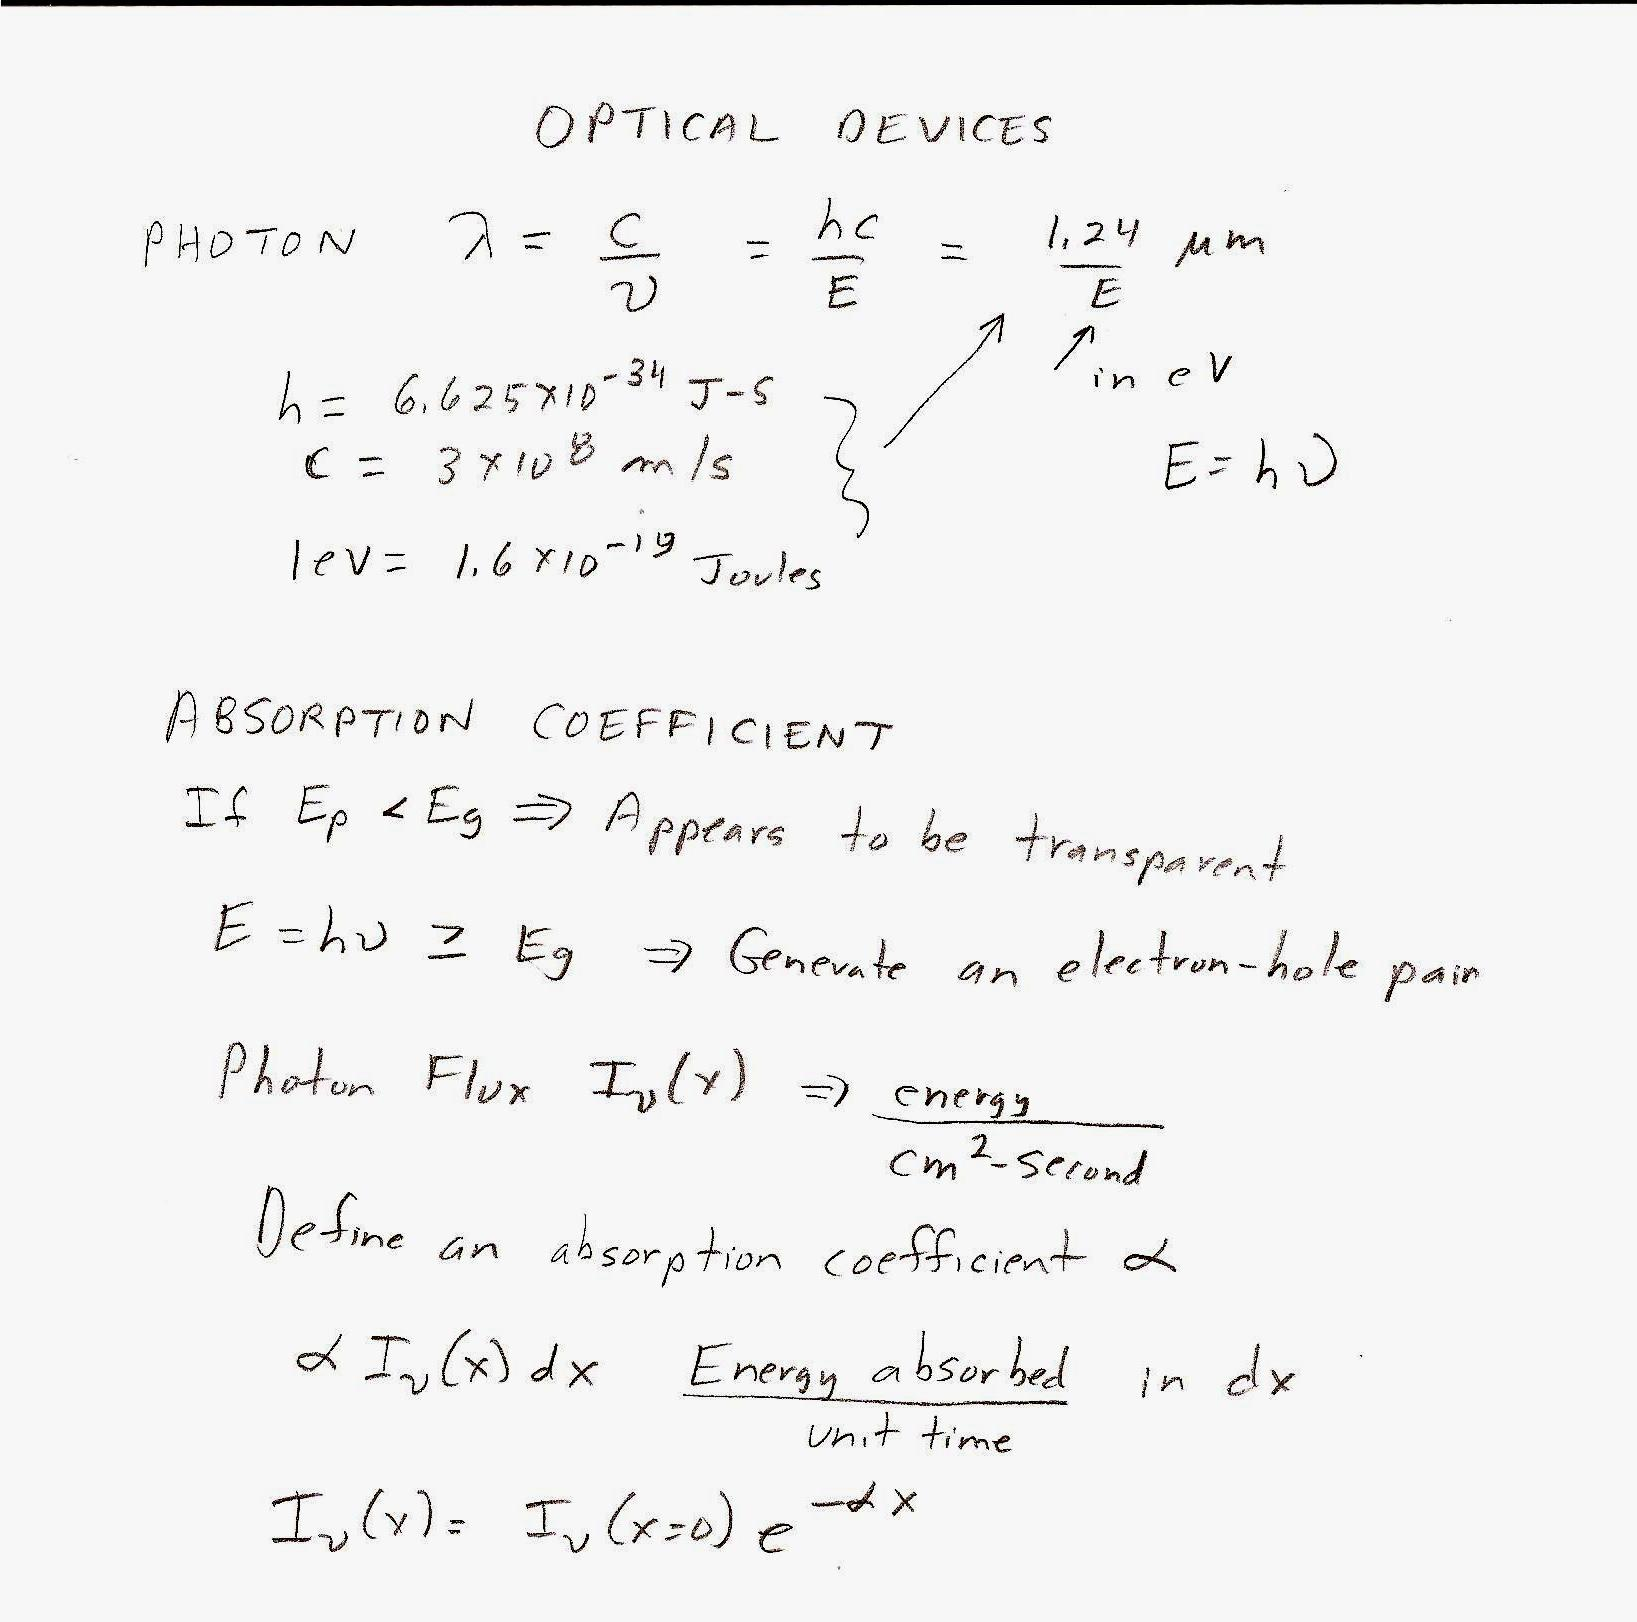 OPTICAL DEVICES
PHOTON λ = c/ν = hc/E = 1.24/E μm
in eV
h = 6.625×10⁻³⁴ J-s
c = 3×10⁸ m/s
E = hν
1ev = 1.6×10⁻¹⁹ Joules
ABSORPTION COEFFICIENT
If Ep < Eg ⇒ Appears to be transparent
E = hν ≥ Eg ⇒ Generate an electron-hole pair
Photon Flux Iν(x) ⇒ energy/cm²-second
Define an absorption coefficient α
α Iν(x) dx Energy absorbed/unit time in dx
Iν(x) = Iν(x=0) e^-αx